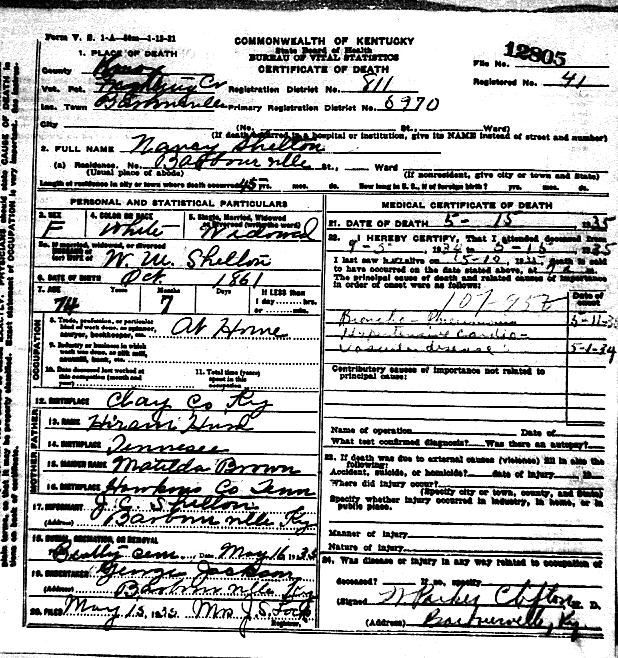 Form V. S. 1-A
COMMONWEALTH OF KENTUCKY
State Board of Health
BUREAU OF VITAL STATISTICS
CERTIFICATE OF DEATH
File No. 12805
Registered No. 41
1. PLACE OF DEATH
County Knox
Vot. Pct. Registration District No. 811
Inc. Town Barbourville Primary Registration District No. 6970
City (No. St., Ward)
(If death occurred in a hospital or institution, give its NAME instead of street and number)
2. FULL NAME Nancy Shelton
(a) Residence. No. Barbourville St., Ward
(Usual place of abode) (If nonresident, give city or town and State)
Length of residence in city or town where death occurred 45 yrs. mos. ds. How long in U. S., if of foreign birth? yrs. mos. ds.
PERSONAL AND STATISTICAL PARTICULARS
3. SEX F 4. COLOR OR RACE White 5. Single, Married, Widowed or Divorced (write the word) Widowed
5a. If married, widowed, or divorced
W. M. Shelton
6. DATE OF BIRTH Oct 1861
7. AGE Years Months Days If LESS than
74 7 1 day hrs.
or min.
OCCUPATION
8. Trade, profession, or particular
kind of work done, as spinner,
sawyer, bookkeeper, etc. At Home
9. Industry or business in which
work was done, as silk mill,
sawmill, bank, etc.
10. Date deceased last worked at
this occupation (month and
year)
11. Total time (years)
spent in this
occupation
12. BIRTHPLACE Clay Co, Ky
FATHER
13. NAME Hiram
14. BIRTHPLACE Tennessee
MOTHER
15. MAIDEN NAME Matilda Brown
16. BIRTHPLACE Hawkins Co Tenn
17. INFORMANT J. C. Shelton
(Address) Barbourville Ky.
18. BURIAL, CREMATION, OR REMOVAL
cem Date May 16 1935
19. UNDERTAKER George Jackson
(Address) Barbourville Ky
20. FILED May 15, 1935 Mrs J. S.
Registrar.
MEDICAL CERTIFICATE OF DEATH
21. DATE OF DEATH 5-15 1935
22. I HEREBY CERTIFY, That I attended deceased from
1934 to 5-15 1935
I last saw h alive on death is said
to have occurred on the date stated above, at
The principal cause of death and related causes of importance
in order of onset were as follows:
Date of
onset
107-95
Broncho-Pneumonia 5-11-35
Hypertensive Cardio-
vascular disease 5-1-34
Contributory causes of importance not related to
principal cause:
Name of operation Date of
What test confirmed diagnosis? Was there an autopsy?
23. If death was due to external causes (violence) fill in also the
following:
Accident, suicide, or homicide? date of injury
Where did injury occur?
(Specify city or town, county, and State)
Specify whether injury occurred in industry, in home, or in
public place.
Manner of injury
Nature of injury
24. Was disease or injury in any way related to occupation of
deceased? If so, specify
(Signed) W Parker Clifton, M. D.
(Address) Barbourville, Ky